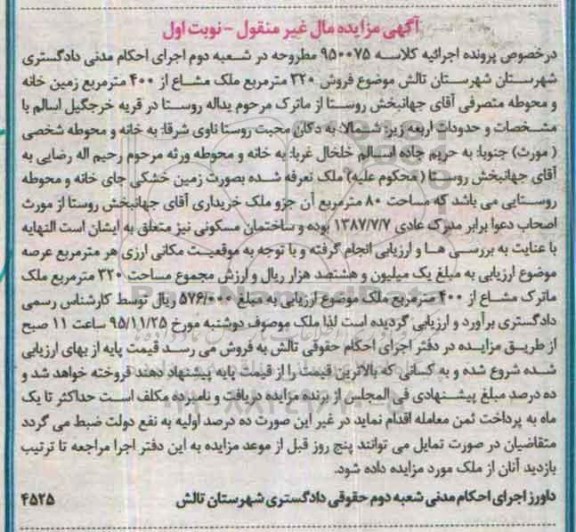 آگهی مزایده مال غیر منقول - نوبت اول
درخصوص پرونده اجرائیه کلاسه ۹۵۰۰۷۵ مطروحه در شعبه دوم اجرای احکام مدنی دادگستری
شهرستان شهرستان تالش موضوع فروش ۳۲۰ مترمربع ملک مشاع از ۴۰۰ مترمربع زمین خانه
و محوطه متصرفی آقای جهانبخش روستا از ماترک مرحوم یداله روستا در قریه خرجگیل اسالم با
مشخصات و حدودات اربعه زیر: شمالا: به دکان محبت روستا ناوی شرقا: به خانه و محوطه شخصی
( مورث) جنوبا: به حریم جاده اسالم خلخال غربا: به خانه و محوطه ورثه مرحوم رحیم اله رضایی به
آقای جهانبخش روستا ( محکوم علیه) ملک تعرفه شده بصورت زمین خشکی جای خانه و محوطه
روستایی می باشد که مساحت ۸۰ مترمربع آن جزو ملک خریداری آقای جهانبخش روستا از مورث
اصحاب دعوا برابر مدرک عادی ۱۳۸۷/۷/۷ بوده و ساختمان مسکونی نیز متعلق به ایشان است النهایه
با عنایت به بررسی ها و ارزیابی انجام گرفته و با توجه به موقعیت مکانی ارزی هر مترمربع عرصه
موضوع ارزیابی به مبلغ یک میلیون و هشتصد هزار ریال و ارزش مجموع مساحت ۳۲۰ مترمربع ملک
ماترک مشاع از ۴۰۰ مترمربع ملک موضوع ارزیابی به مبلغ ۵۷۶/۰۰۰ ریال توسط کارشناس رسمی
دادگستری برآورد و ارزیابی گردیده است لذا ملک موصوف دوشنبه مورخ ۹۵/۱۱/۲۵ ساعت ۱۱ صبح
از طریق مزایده در دفتر اجرای احکام حقوقی تالش به فروش می رسد قیمت پایه از بهای ارزیابی
شده شروع شده و به کسانی که بالاترین قیمت را از قیمت پایه پیشنهاد دهند فروخته خواهد شد و
ده درصد مبلغ پیشنهادی فی المجلس از برنده مزایده دریافت و نامبرده مکلف است حداکثر تا یک
ماه به پرداخت ثمن معامله اقدام نماید در غیر این صورت ده درصد اولیه به نفع دولت ضبط می گردد
متقاضیان در صورت تمایل می توانند پنج روز قبل از موعد مزایده به این دفتر اجرا مراجعه تا ترتیب
بازدید آنان از ملک مورد مزایده داده شود.
داورز اجرای احکام مدنی شعبه دوم حقوقی دادگستری شهرستان تالش ۴۵۲۵